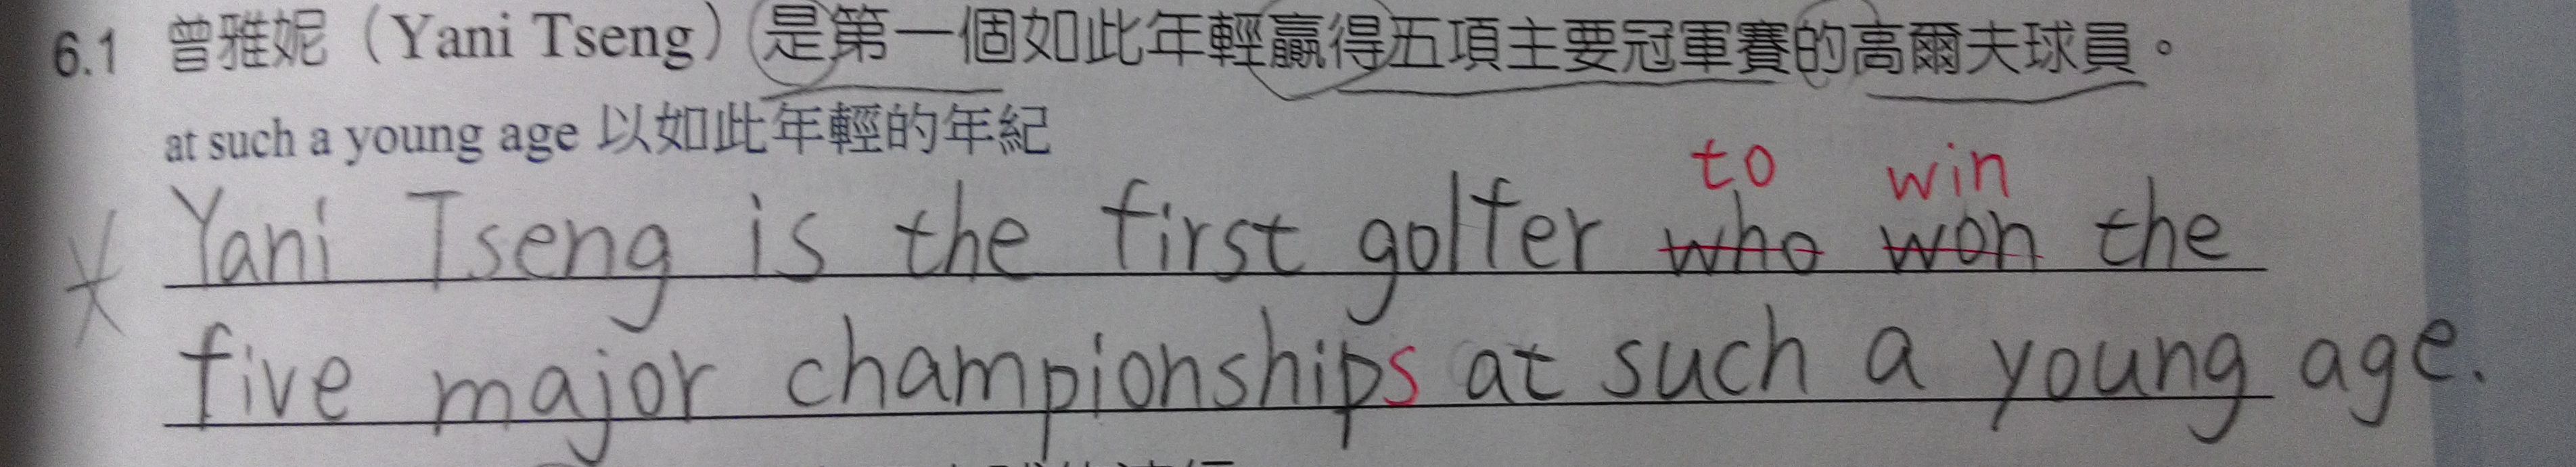 6.1 曾雅妮（Yani Tseng）是第一個如此年輕贏得五項主要冠軍賽的高爾夫球員。
at such a young age 以如此年輕的年紀
to win
Yani Tseng is the first golfer who won the
five major championships at such a young age.